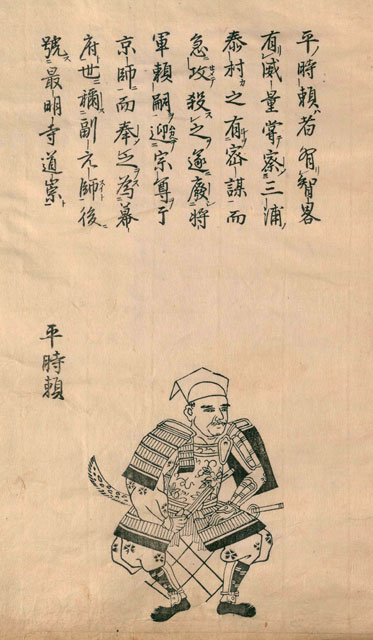 平時頼者有智畧
有威量嘗察三浦
泰村之有密謀而
急攻殺之遂廢将
軍頼嗣迎宗尊于
京師而奉之為幕
府世稱副元帥後
號最明寺道崇
平時頼